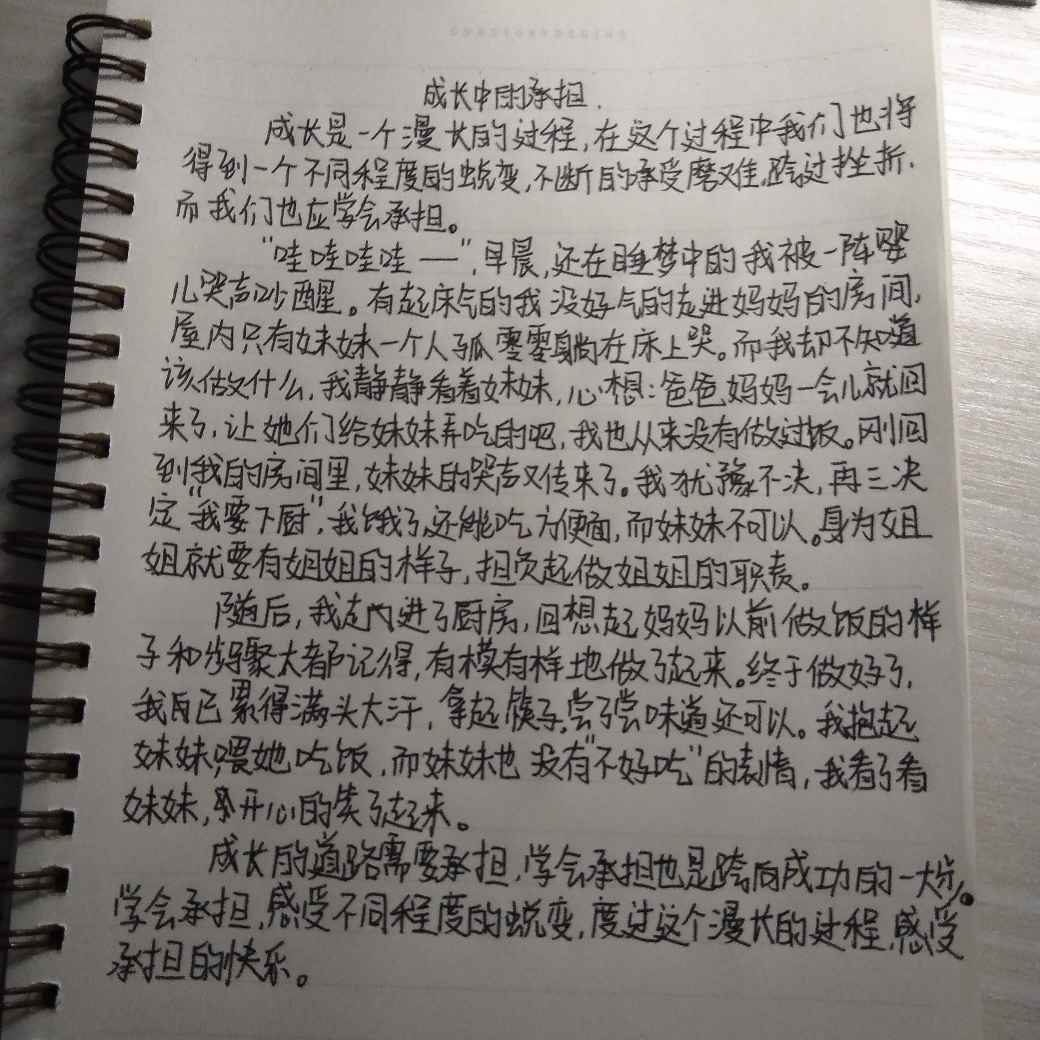 成长中的承担.
成长是一个漫长的过程,在这个过程中我们也将
得到一个不同程度的蜕变,不断的承受磨难,跨过挫折,
而我们也应学会承担。
“哇哇哇哇——”,早晨,还在睡梦中的我被一阵婴
儿哭声吵醒。有起床气的我没好气的走进妈妈的房间,
屋内只有妹妹一个人孤零零躺在床上哭。而我却不知道
该做什么,我静静看着妹妹,心想:爸爸妈妈一会儿就回
来了,让她们给妹妹弄吃的吧,我也从来没有做过饭。刚回
到我的房间里,妹妹的哭声又传来了。我犹豫不决,再三决
定“我要下厨”,我饿了,还能吃方便面,而妹妹不可以。身为姐
姐就要有姐姐的样子,担负起做姐姐的职责。
随后,我走进了厨房,回想起妈妈以前做饭的样
子和步骤大都记得,有模有样地做了起来。终于做好了,
我自己累得满头大汗,拿起筷子,尝了尝味道还可以。我抱起
妹妹,喂她吃饭,而妹妹也没有“不好吃”的表情,我看了看
妹妹,开心的笑了起来。
成长的道路需要承担,学会承担也是跨向成功的一大步。
学会承担,感受不同程度的蜕变,度过这个漫长的过程,感受
承担的快乐。